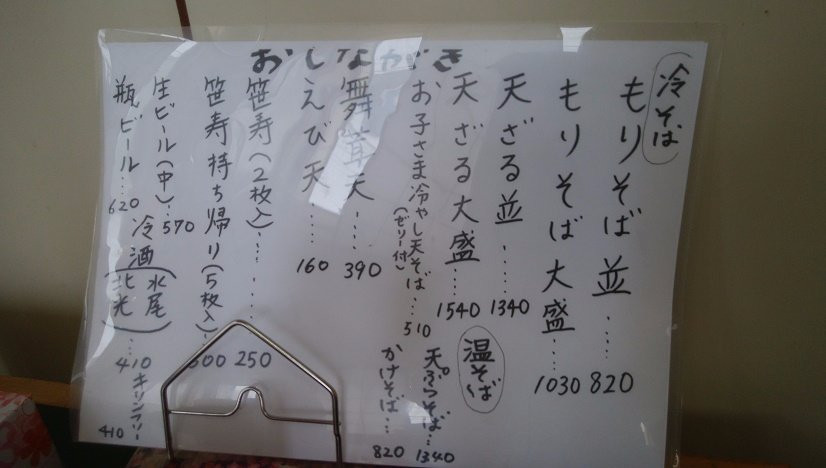 おしながき
冷そば
もりそば並……820
もりそば大盛……1030
天ざる並……1340
天ざる大盛……1540
お子さま冷やし天そば……510
(ゼリー付)
温そば
天ぷらそば…1340
かけそば…820
舞茸天……390
えび天……160
笹寿(2枚入)……250
笹寿持ち帰り(5枚入)
生ビール(中)…570
瓶ビール…620
冷酒(水尾 北光)…410
キリンフリー
410